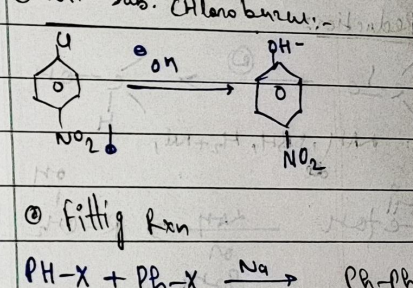 sub. Chlorobenzene:-
Cl
⊖
OH
OH-
NO2
NO2
② Fittig Rxn
PH-X + Ph-X Na → Ph-Ph